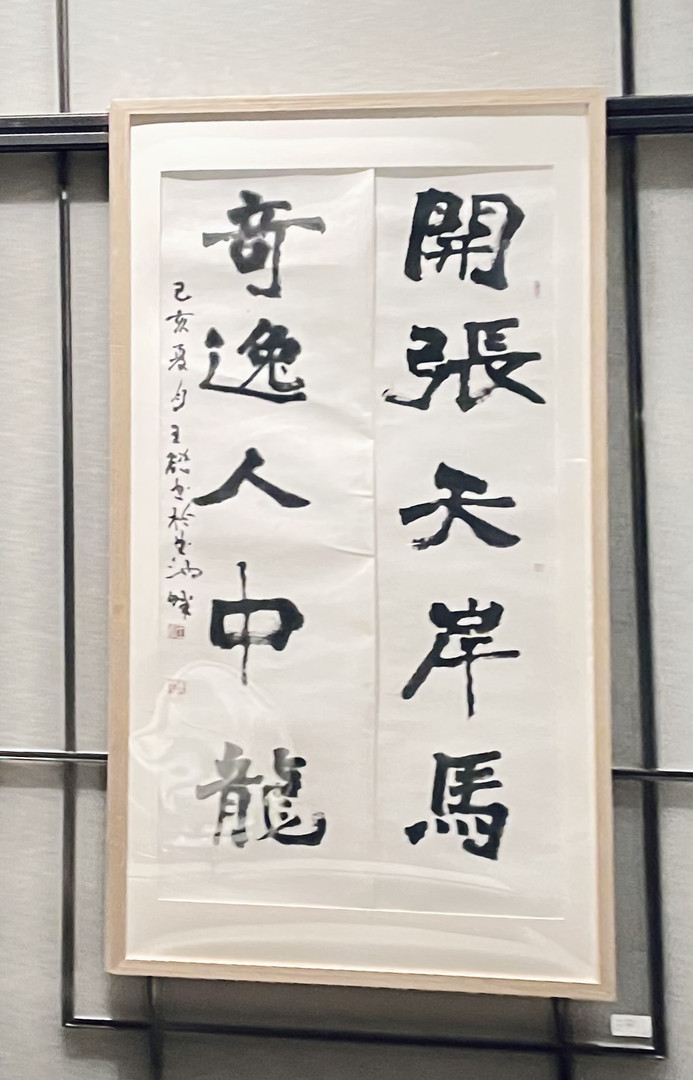 開張天岸馬
奇逸人中龍
己亥夏月王